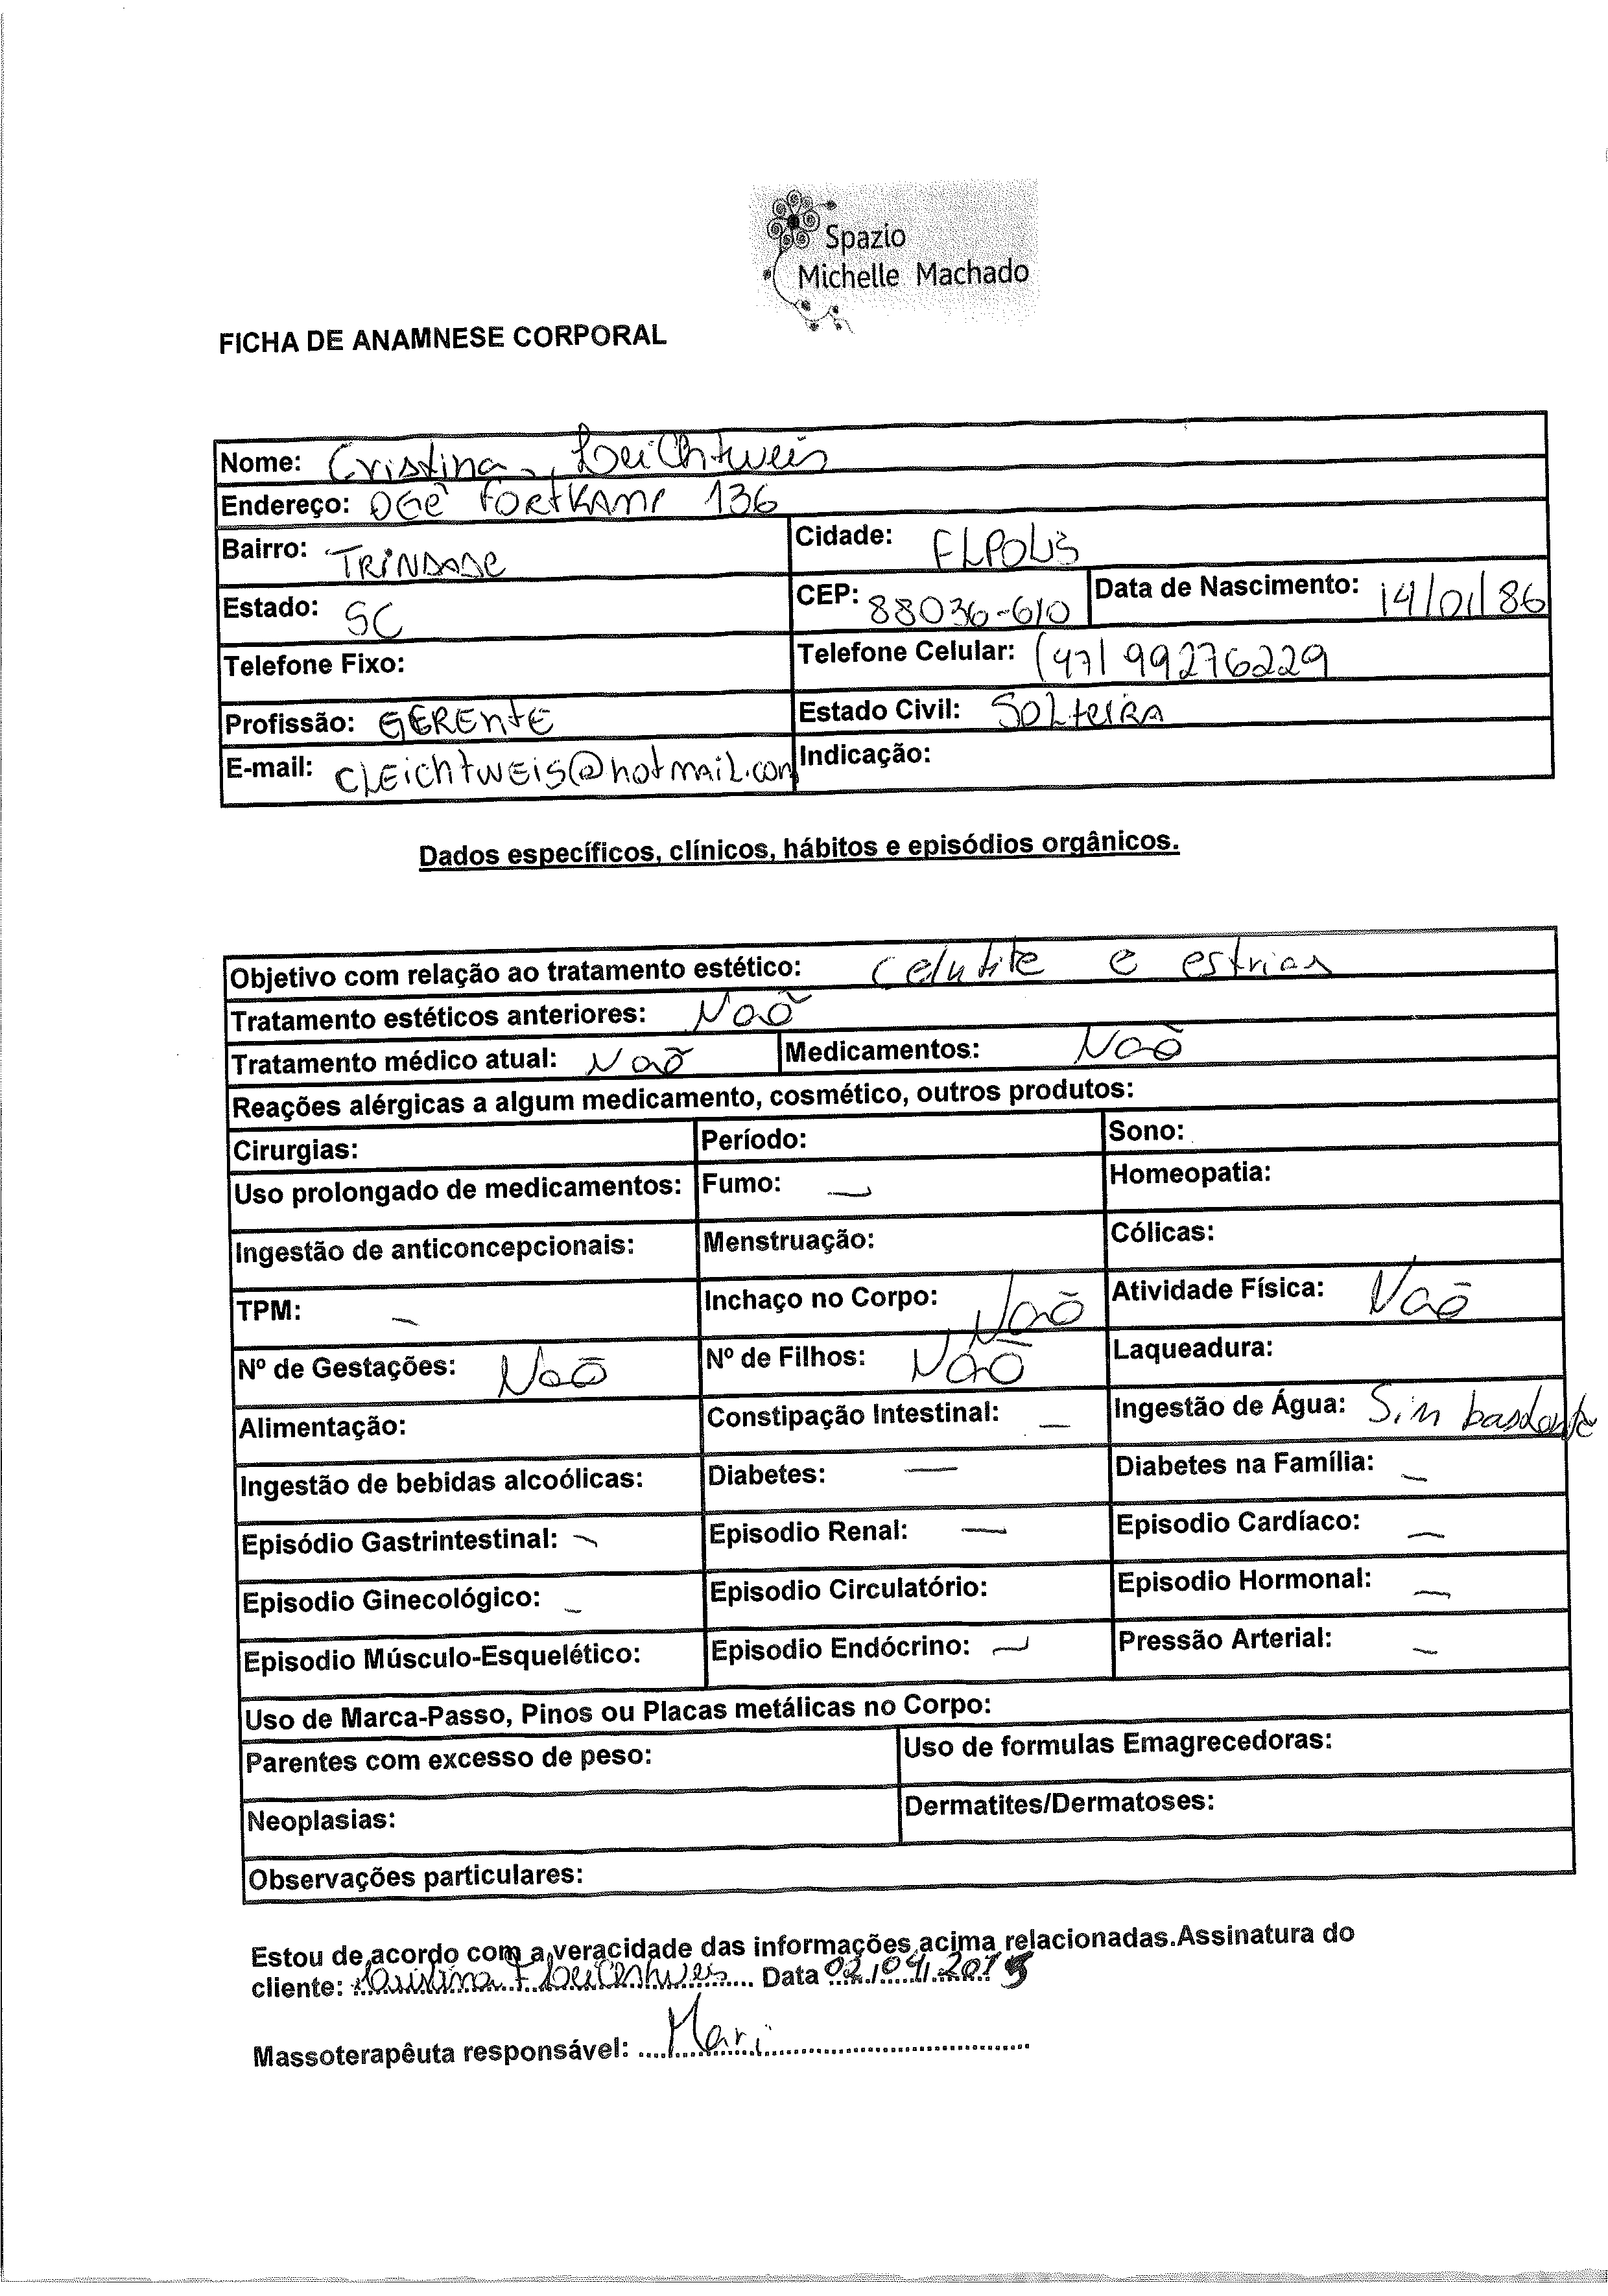 Spazio
Michelle Machado
FICHA DE ANAMNESE CORPORAL
Nome: Cristina Leichtweis
Endereço: DGê FORtKAMP 136
Bairro: TRiNDADE Cidade: FLPOLIS
Estado: SC CEP: 88036-610 Data de Nascimento: 14/01/86
Telefone Fixo: Telefone Celular: (47) 99276229
Profissão: GERENtE Estado Civil: SOLteiRA
E-mail: CLEichtWEiS@hotmail.com Indicação:
Dados específicos, clínicos, hábitos e episódios orgânicos.
Objetivo com relação ao tratamento estético: Celulite e estrias
Tratamento estéticos anteriores: Não
Tratamento médico atual: Não Medicamentos: Não
Reações alérgicas a algum medicamento, cosmético, outros produtos:
Cirurgias: Período: Sono:
Uso prolongado de medicamentos: Fumo: — Homeopatia:
Ingestão de anticoncepcionais: Menstruação: Cólicas:
TPM: — Inchaço no Corpo: Não Atividade Física: Não
Nº de Gestações: Não Nº de Filhos: Não Laqueadura:
Alimentação: Constipação Intestinal: — Ingestão de Água: Sim bastante
Ingestão de bebidas alcoólicas: Diabetes: — Diabetes na Família: —
Episódio Gastrintestinal: — Episodio Renal: — Episodio Cardíaco: —
Episodio Ginecológico: — Episodio Circulatório: Episodio Hormonal: —
Episodio Músculo-Esquelético: Episodio Endócrino: — Pressão Arterial: —
Uso de Marca-Passo, Pinos ou Placas metálicas no Corpo:
Parentes com excesso de peso: Uso de formulas Emagrecedoras:
Neoplasias: Dermatites/Dermatoses:
Observações particulares:
Estou de acordo com a veracidade das informações acima relacionadas.Assinatura do
cliente: Cristina F Leichtweis Data 02/04/2015
Massoterapêuta responsável: Mari